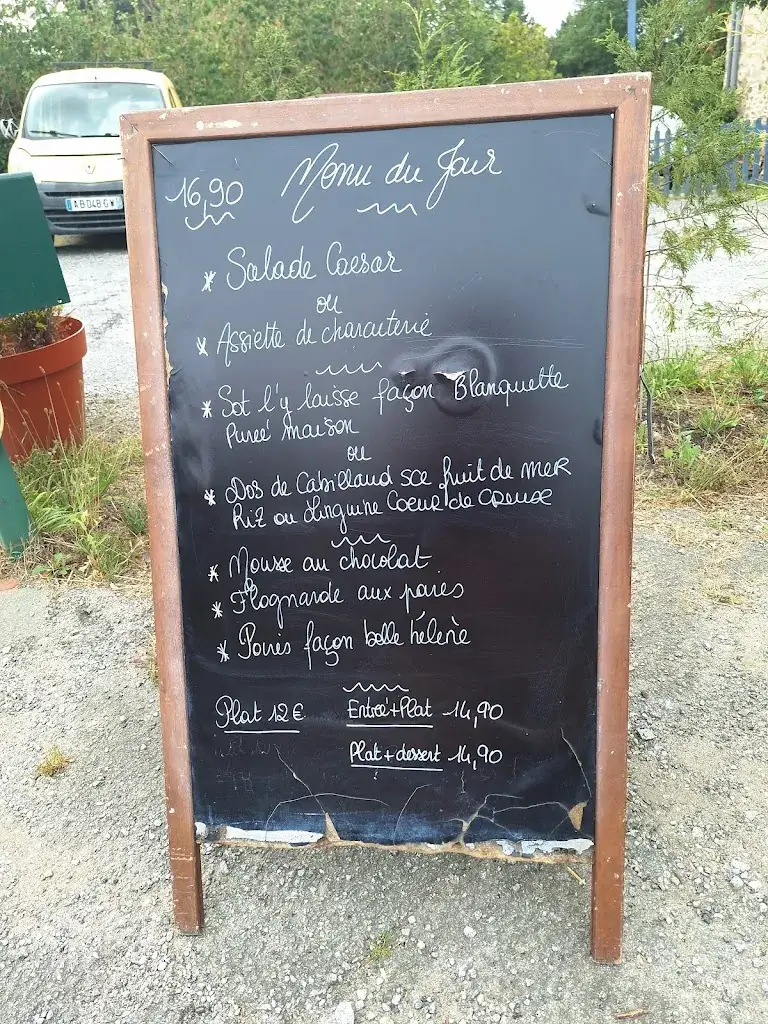 AB 048 GW
16,90 Menu du Jour
* Salade Caesar
ou
* Assiette de charcuterie
* Sot l'y laisse façon Blanquette
Pureé maison
ou
* Dos de Cabillaud sce fruit de mer
Riz ou Linguine Coeur de Creuse
* Mousse au chocolat
* Flognarde aux poires
* Poires façon belle hélène
Plat 12€ Entreé+Plat 14,90
Plat + dessert 14,90